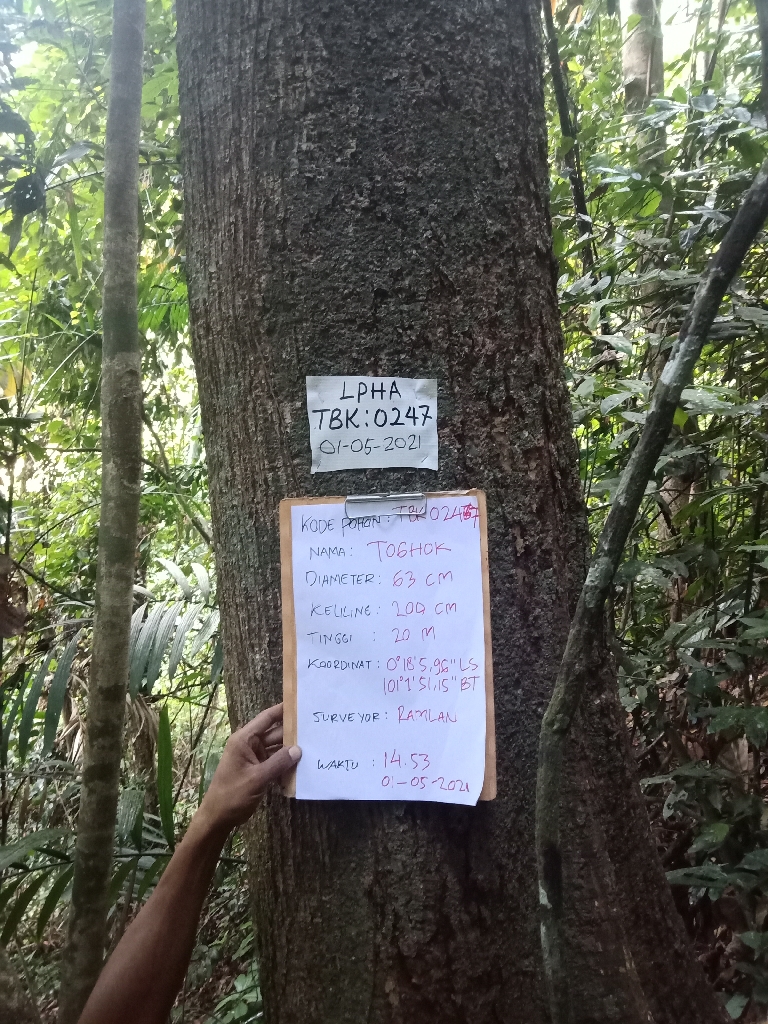 LPHA
TBK:0247
01-05-2021
KODE POHON : TBK0247
NAMA : TOGHOK
DIAMETER : 63 CM
KELILING : 200 CM
TINGGI : 20 M
KOORDINAT : 0°18'5,96" LS
101°1'51,15" BT
SURVEYOR : RAMLAN
WAKTU : 14.53
01-05-2021